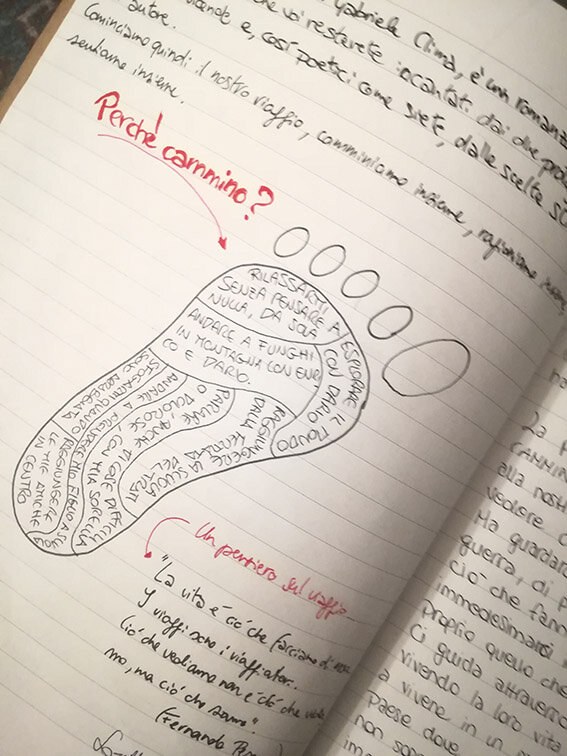 Gabriele Clima, è un romanz
autore. che voi resterete incantati dai due pro
e, così poetici come siete, dalle scelte
Cominciamo quindi il nostro viaggio, camminiamo insieme, ragioniamo
sentiamo insieme.
Perché cammino?
RILASSARMI
SENZA PENSARE A
NULLA, DA SOLA
ESPLORARE IL MONDO
CON DARIO
ANDARE A FUNGHI
IN MONTAGNA CON ENRI
CO E DARIO.
RAGGIUNGERE LA SCUOLA
DALLA
PARLARE, ANCHE DI COSE DIFFICILI
O DOLOROSE, CON MIA SORELLA
ANDARE A PRENDERE MIO FIGLIO A SCUOLA
SFOGARMI QUANDO
SONO
RAGGIUNGERE
LE MIE AMICHE
IN CENTRO
Un pensiero sul viaggio
"La vita è ciò che facciamo di essa
I viaggi sono i viaggiatori.
Ciò che vediamo non è ciò che vedia
mo, ma ciò che siamo".
(Fernando Pes
ha
La p
CAMMIN
alla nostr
vedere c
Ha guardar
guerra, di p
ciò che fann
immedesimarci
proprio quello che
Ci guida attravers
vivendo la loro vita
a vivere in u
Paese dove
non so
im